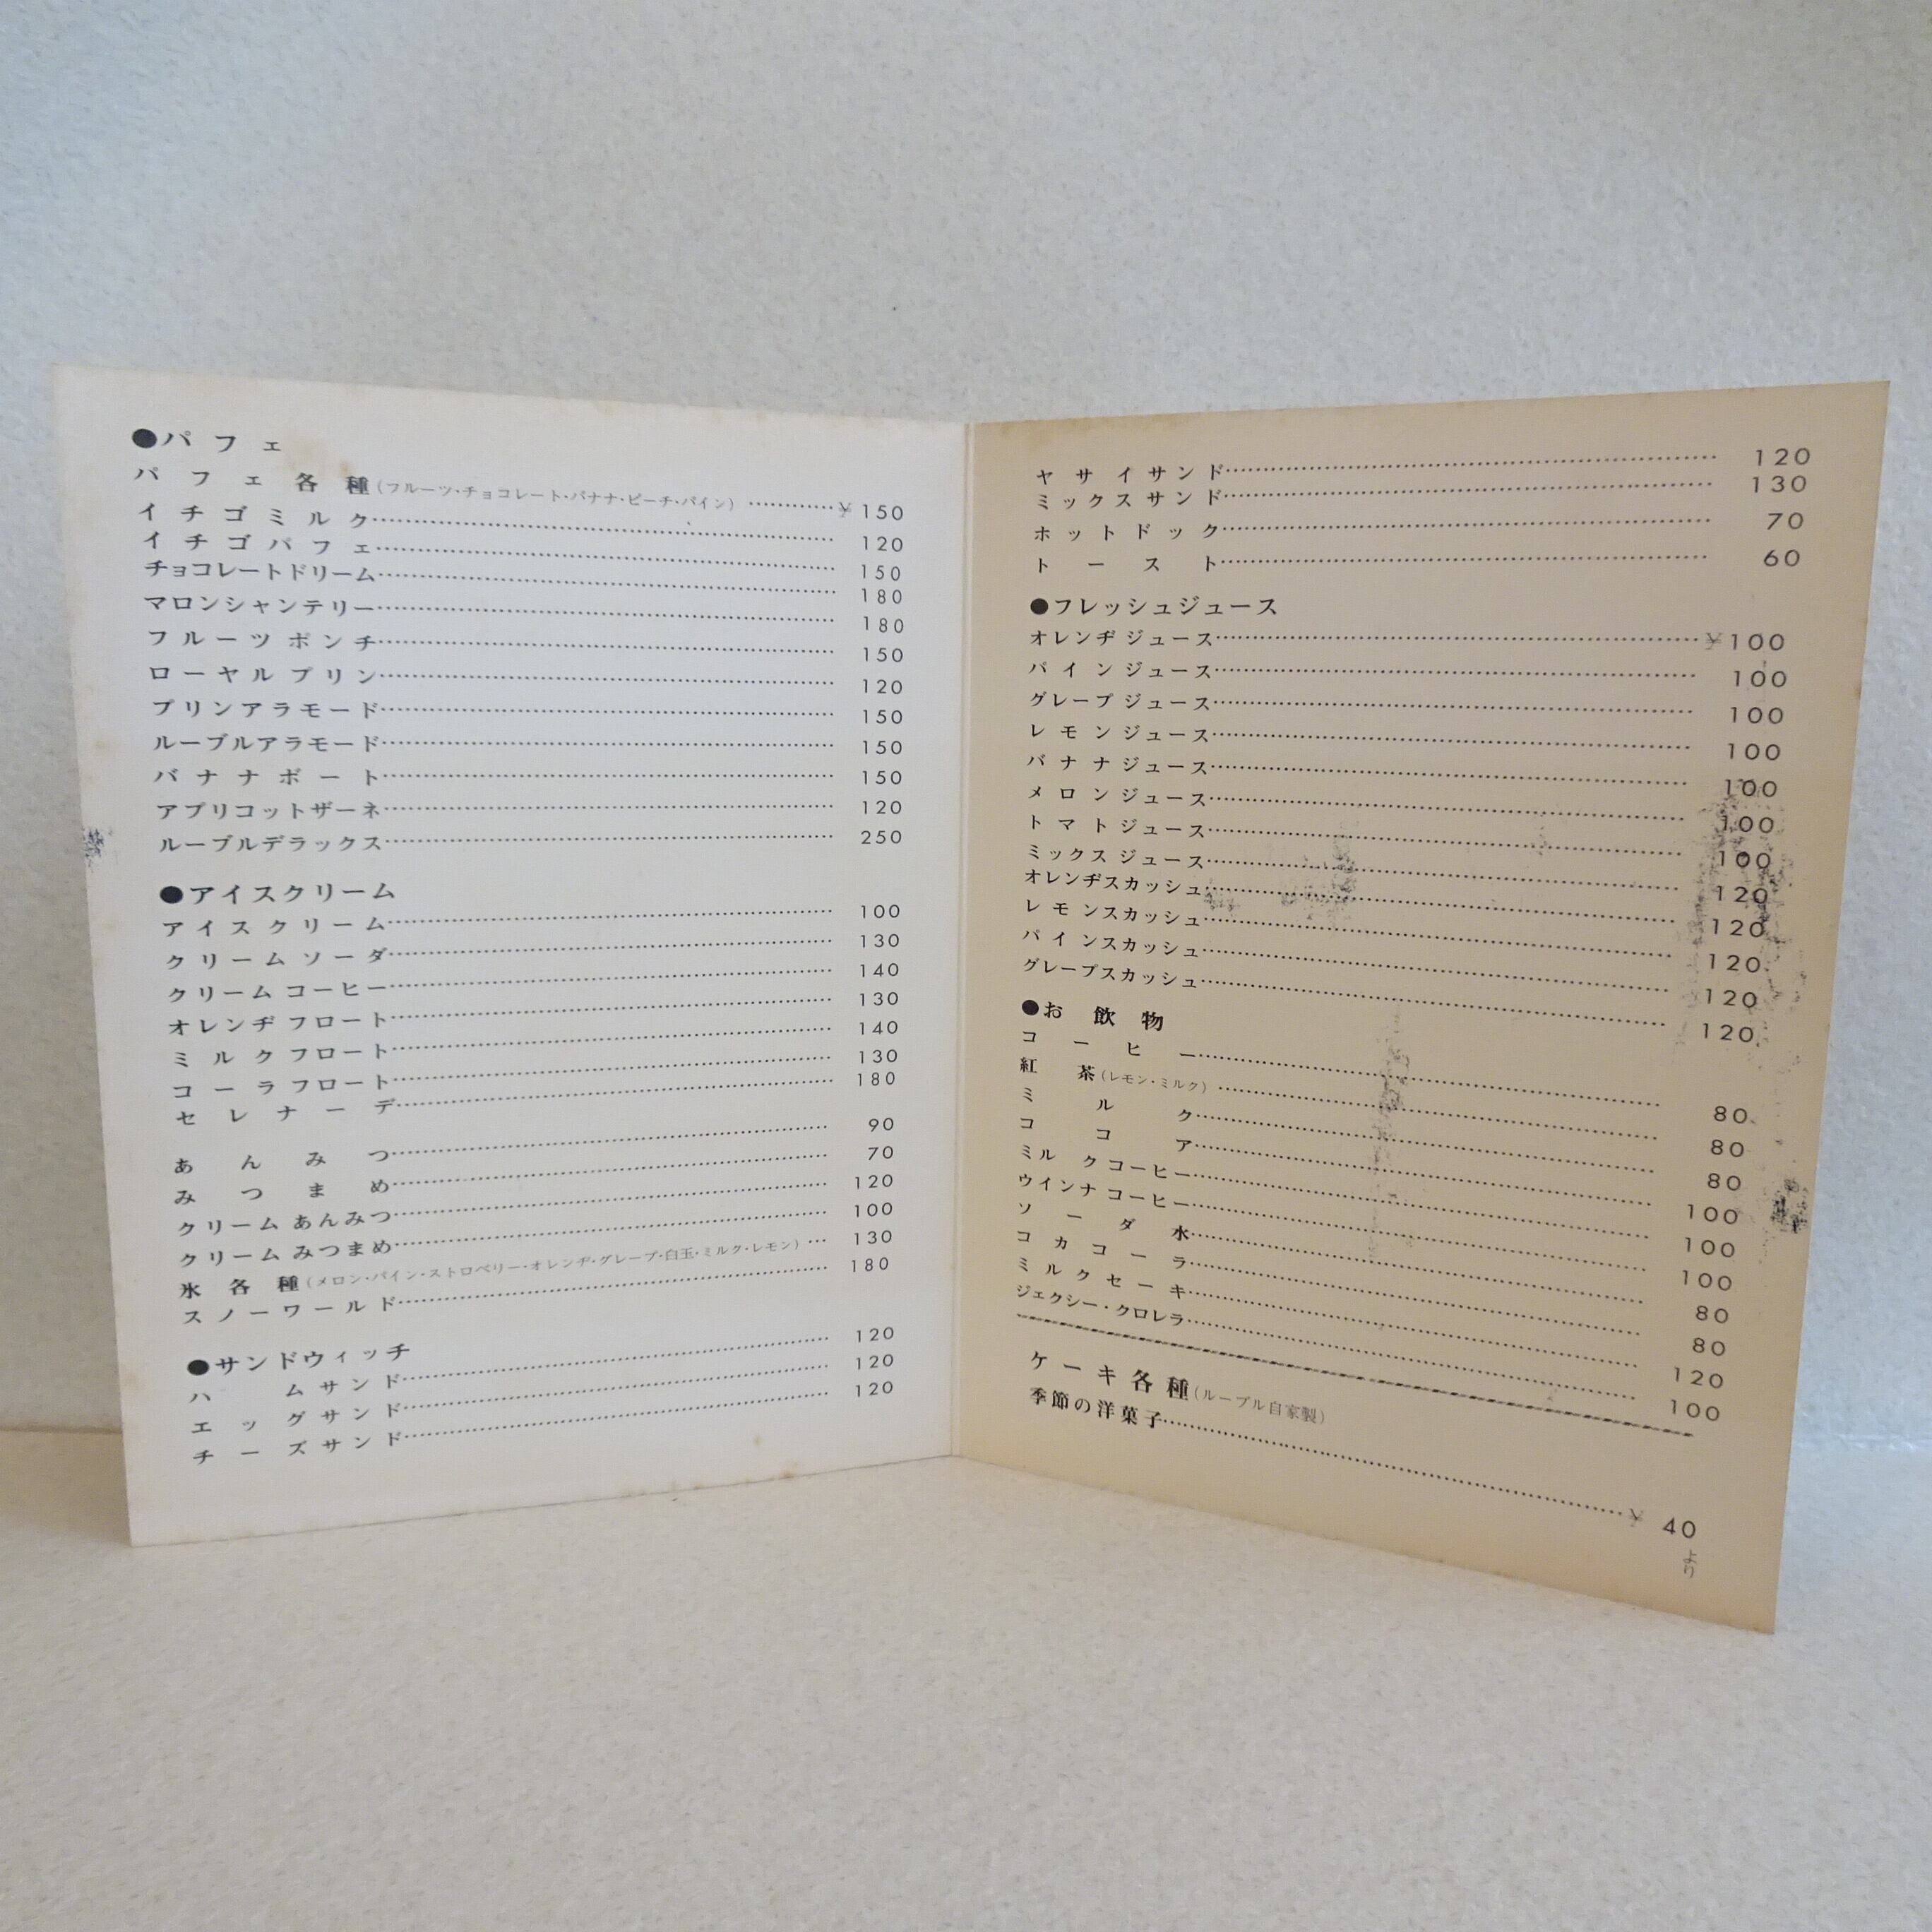 ●パフェ
パフェ各種(フルーツ・チョコレート・バナナ・ピーチ・パイン)…………¥150
イチゴミルク…………120
イチゴパフェ…………150
チョコレートドリーム…………180
マロンシャンテリー…………180
フルーツポンチ…………150
ローヤルプリン…………120
プリンアラモード…………150
ルーブルアラモード…………150
バナナボート…………150
アプリコットザーネ…………120
ルーブルデラックス…………250
●アイスクリーム
アイスクリーム…………100
クリームソーダ…………130
クリームコーヒー…………140
オレンヂフロート…………130
ミルクフロート…………140
コーラフロート…………130
セレナーデ…………180
あんみつ…………90
みつまめ…………70
クリームあんみつ…………120
クリームみつまめ…………100
氷各種(メロン・パイン・ストロベリー・オレンヂ・グレープ・白玉・ミルク・レモン)…130
スノーワールド…………180
●サンドウィッチ
ハムサンド…………120
エッグサンド…………120
チーズサンド…………120
ヤサイサンド…………120
ミックスサンド…………130
ホットドック…………70
トースト…………60
●フレッシュジュース
オレンヂジュース…………¥100
パインジュース…………100
グレープジュース…………100
レモンジュース…………100
バナナジュース…………100
メロンジュース…………100
トマトジュース…………100
ミックスジュース…………120
オレンヂスカッシュ…………120
レモンスカッシュ…………120
パインスカッシュ…………120
グレープスカッシュ…………120
●お飲物
コーヒー…………80
紅茶(レモン・ミルク)…………80
ミルク…………80
ココア…………100
ミルクコーヒー…………100
ウインナコーヒー…………100
ソーダ水…………80
コカコーラ…………80
ミルクセーキ…………120
ジェクシー・クロレラ…………100
ケーキ各種(ルーブル自家製)
季節の洋菓子…………¥40より